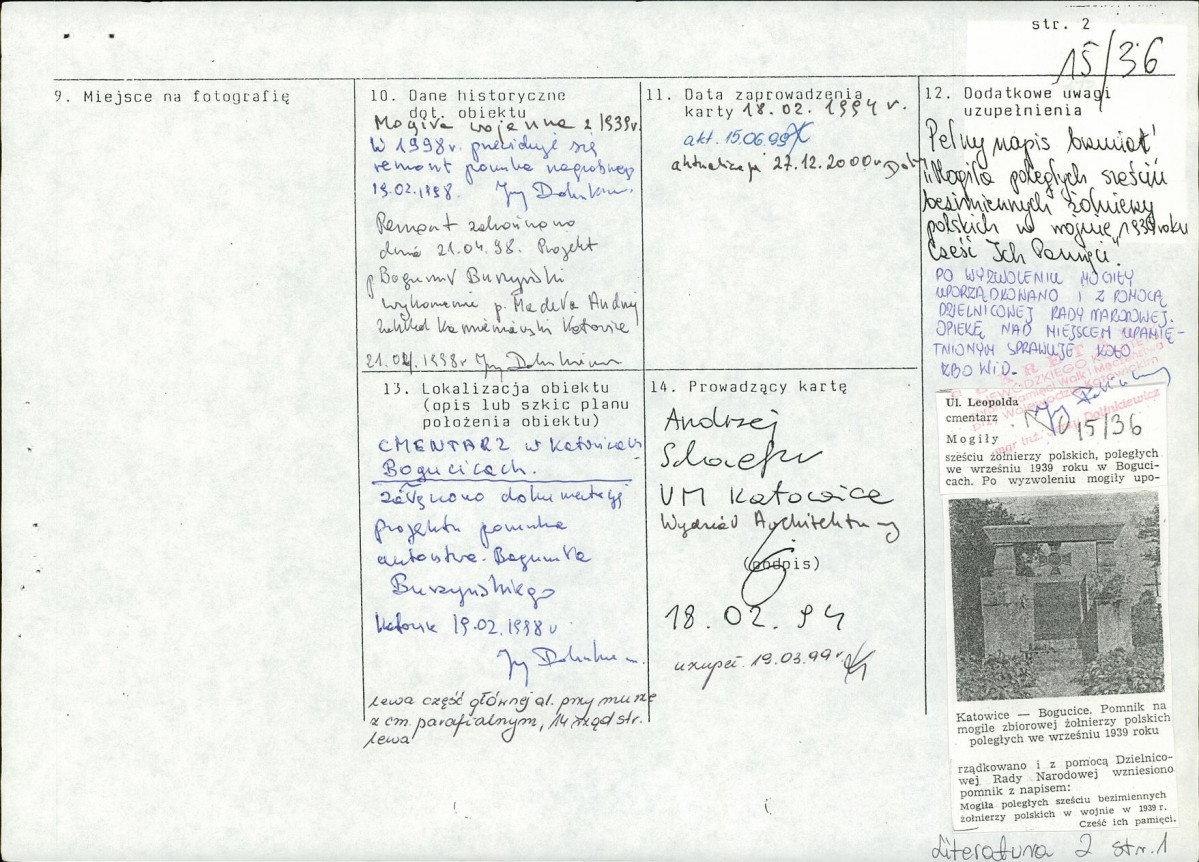 str. 2
15/36
9. Miejsce na fotografię
10. Dane historyczne
dot. obiektu
Mogiła wojenna z 1939r.
W 1998r. przewiduje się
remont pomnika nagrobnego
19.02.1998.
Remont zakończono
dnia 21.04.98. Projekt
p Bogumił Burzyński
wykonanie p. Madeła Andrzej
Zakład Kamieniarski Katowice
21.04.1998r
11. Data zaprowadzenia
karty 18.02.1994 r.
akt. 15.06.99
aktualizacja 27.12.2000r
12. Dodatkowe uwagi
uzupełnienia
Pełny napis brzmiał
"Mogiła poległych sześciu
bezimiennych żołnierzy
polskich w wojnie 1939 roku
Cześć Ich Pamięci".
PO WYZWOLENIU MOGIŁY
UPORZĄDKOWANO I Z POMOCĄ
DZIELNICOWEJ RADY NARODOWEJ.
OPIEKĘ NAD MIEJSCEM UPAMIĘ-
TNIONYM SPRAWUJE KOŁO
ZBOWiD.
13. Lokalizacja obiektu
(opis lub szkic planu
położenia obiektu)
CMENTARZ w Katowicach
Bogucicach.
załączono dokumentację
projektu pomnika
autorstwa Bogumiła
Burzyńskiego
Katowice 19.02.1998 r
lewa część głównej al. przy murze
z cm. parafialnym, 14 rząd str.
lewa
14. Prowadzący kartę
Andrzej
UM Katowice
Wydział Architektury
(podpis)
18.02.94
uzupeł. 19.03.99r
mgr inż. Dolnikiewicz
Ul. Leopolda
cmentarz
15/36
Mogiły
sześciu żołnierzy polskich, poległych
we wrześniu 1939 roku w Boguci-
cach. Po wyzwoleniu mogiły upo-
Katowice — Bogucice. Pomnik na
mogile zbiorowej żołnierzy polskich
poległych we wrześniu 1939 roku
rządkowano i z pomocą Dzielnico-
wej Rady Narodowej wzniesiono
pomnik z napisem:
Mogiła poległych sześciu bezimiennych
żołnierzy polskich w wojnie w 1939 r.
Cześć ich pamięci.
Literatura 2 str. 1